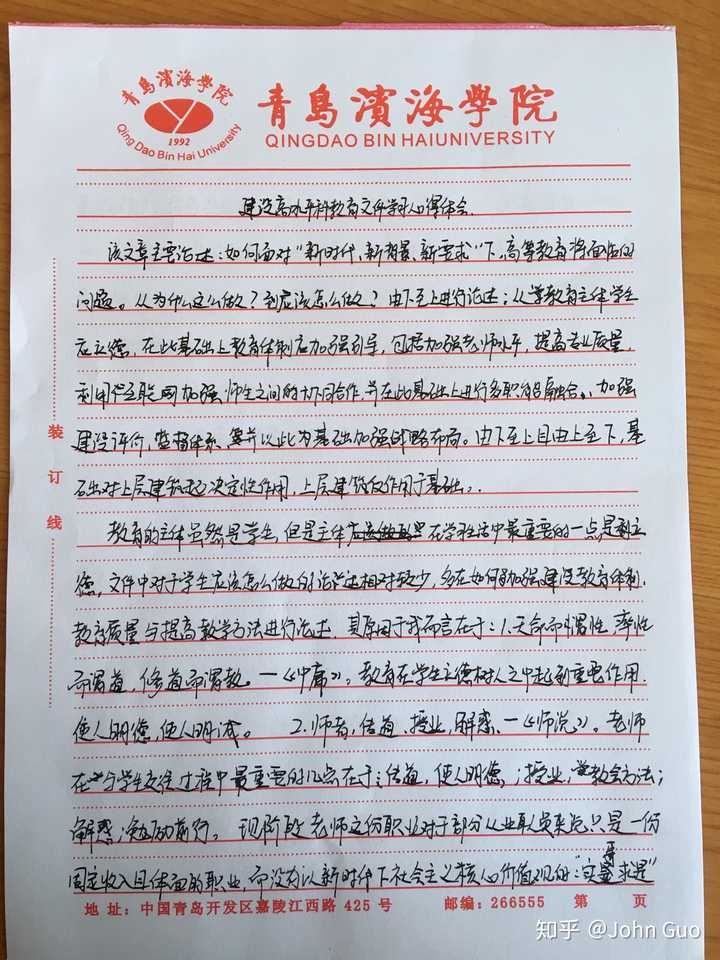 青島濱海學院
Qing Dao Bin Hai University
1992
青島濱海學院
QINGDAO BIN HAIUNIVERSITY
建设高水平科教育文件学习心得体会.
该文章主要论述:如何面对"新时代、新背景、新要求"下,高等教育将面临的
问题。从为什么这么做?到应该怎么做?由下至上进行论述;从学教育主体学生
应立德,在此基础上教育体制应加强引导,包括加强老师水平,提高专业质量,
利用互联网加强师生之间的协同合作,并在此基础上进行多职能融合,加强
建设评价,监督体系,并以此为基础加强战略布局。由下至上且由上至下,基
础对上层建筑起决定性作用,上层建筑反作用于基础。
教育的主体虽然是学生,但是主体在学习生活中最重要的一点是立
德,文件中对于学生应该怎么做的论述相对较少,多在如何加强建设教育体制,
教育质量与提高教学方法进行论述,其原因于我而言在于:1.天命而谓性,率性
而谓道,修道而谓教。—《中庸》。教育在学生立德树人之中起到重要作用,
使人明德,使人明诚。 2.师者,传道、授业,解惑、—《师说》。老师
在与学生交往过程中最重要的几点在于:传道,使人明德,;授业,教会方法;
解惑,勉励前行。现阶段老师这份职业对于部分从业职员来说只是一份
固定收入且体面的职业,而没有以新时代下社会主义核心价值观的:"实事求是"
装
订
线
地 址:中国青岛开发区嘉陵江西路 425 号 邮编:266555 第 页
知乎 @John Guo